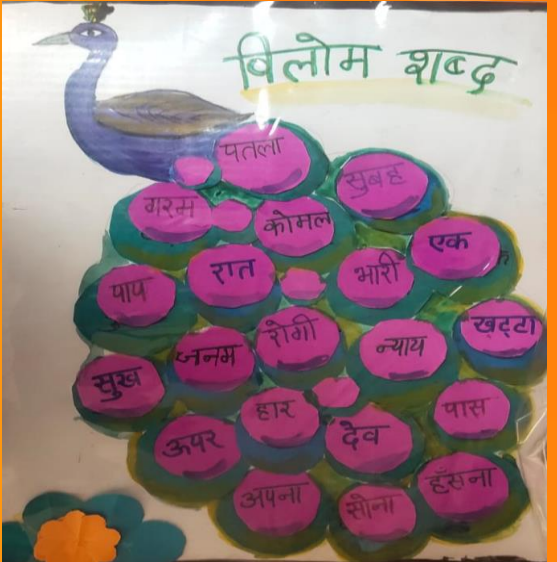 विलोम शब्द
पतला
सुबह
गरम
कोमल
एक
पाप
रात
भारी
खट्टा
सुख
जनम
रोगी
न्याय
पास
ऊपर
हार
देव
अपना
सोना
हँसना